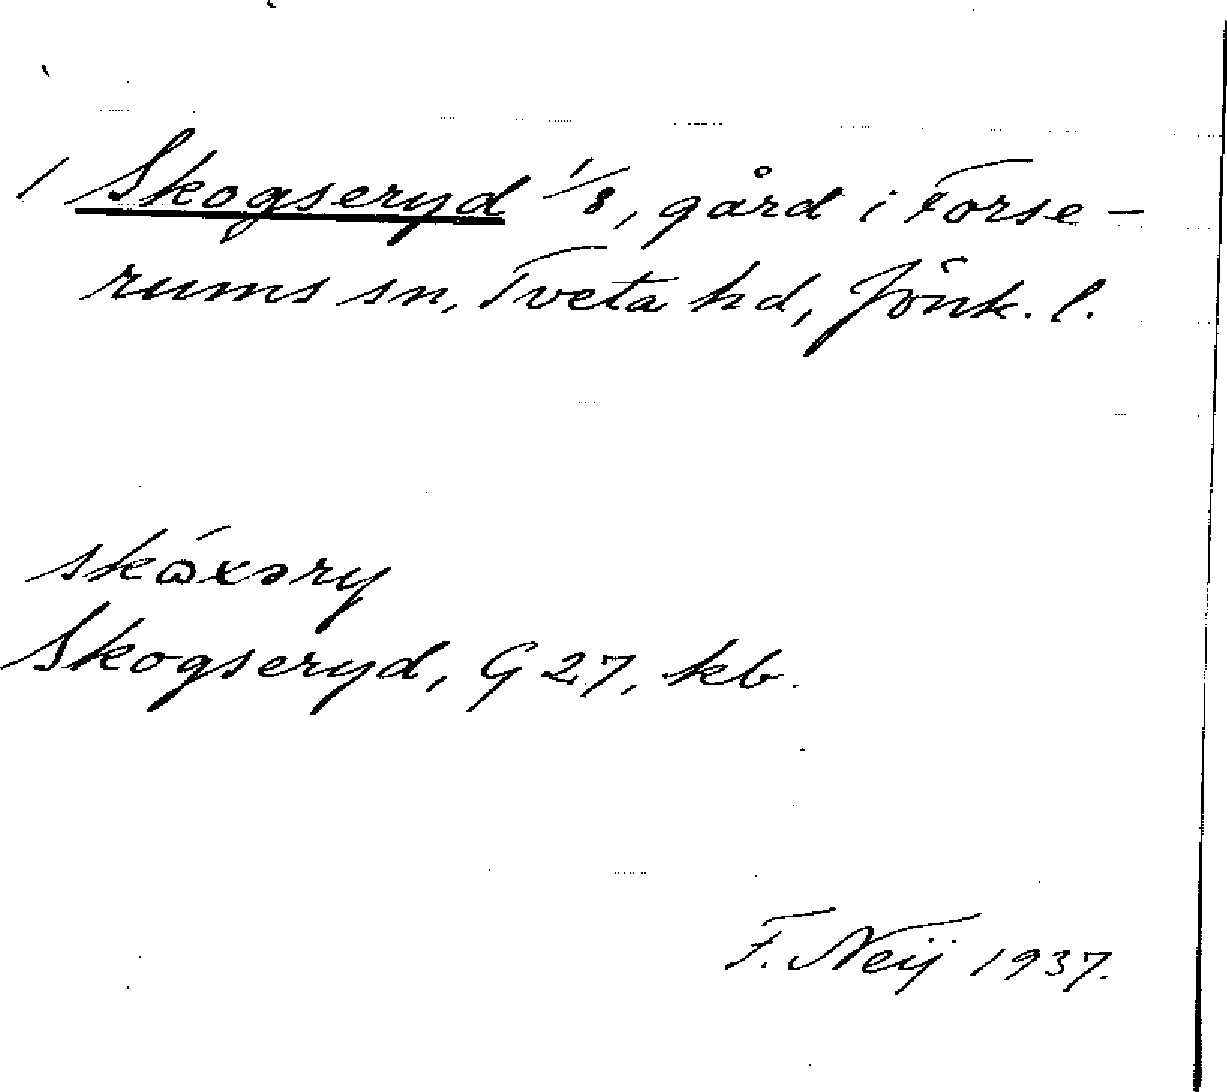 / Skogseryd 1/8, gård i Forse-
rums sn, Tveta hd, Jönk. l.
skɷ́xəry
Skogseryd, G 27, kb.
F. Neij 1937.